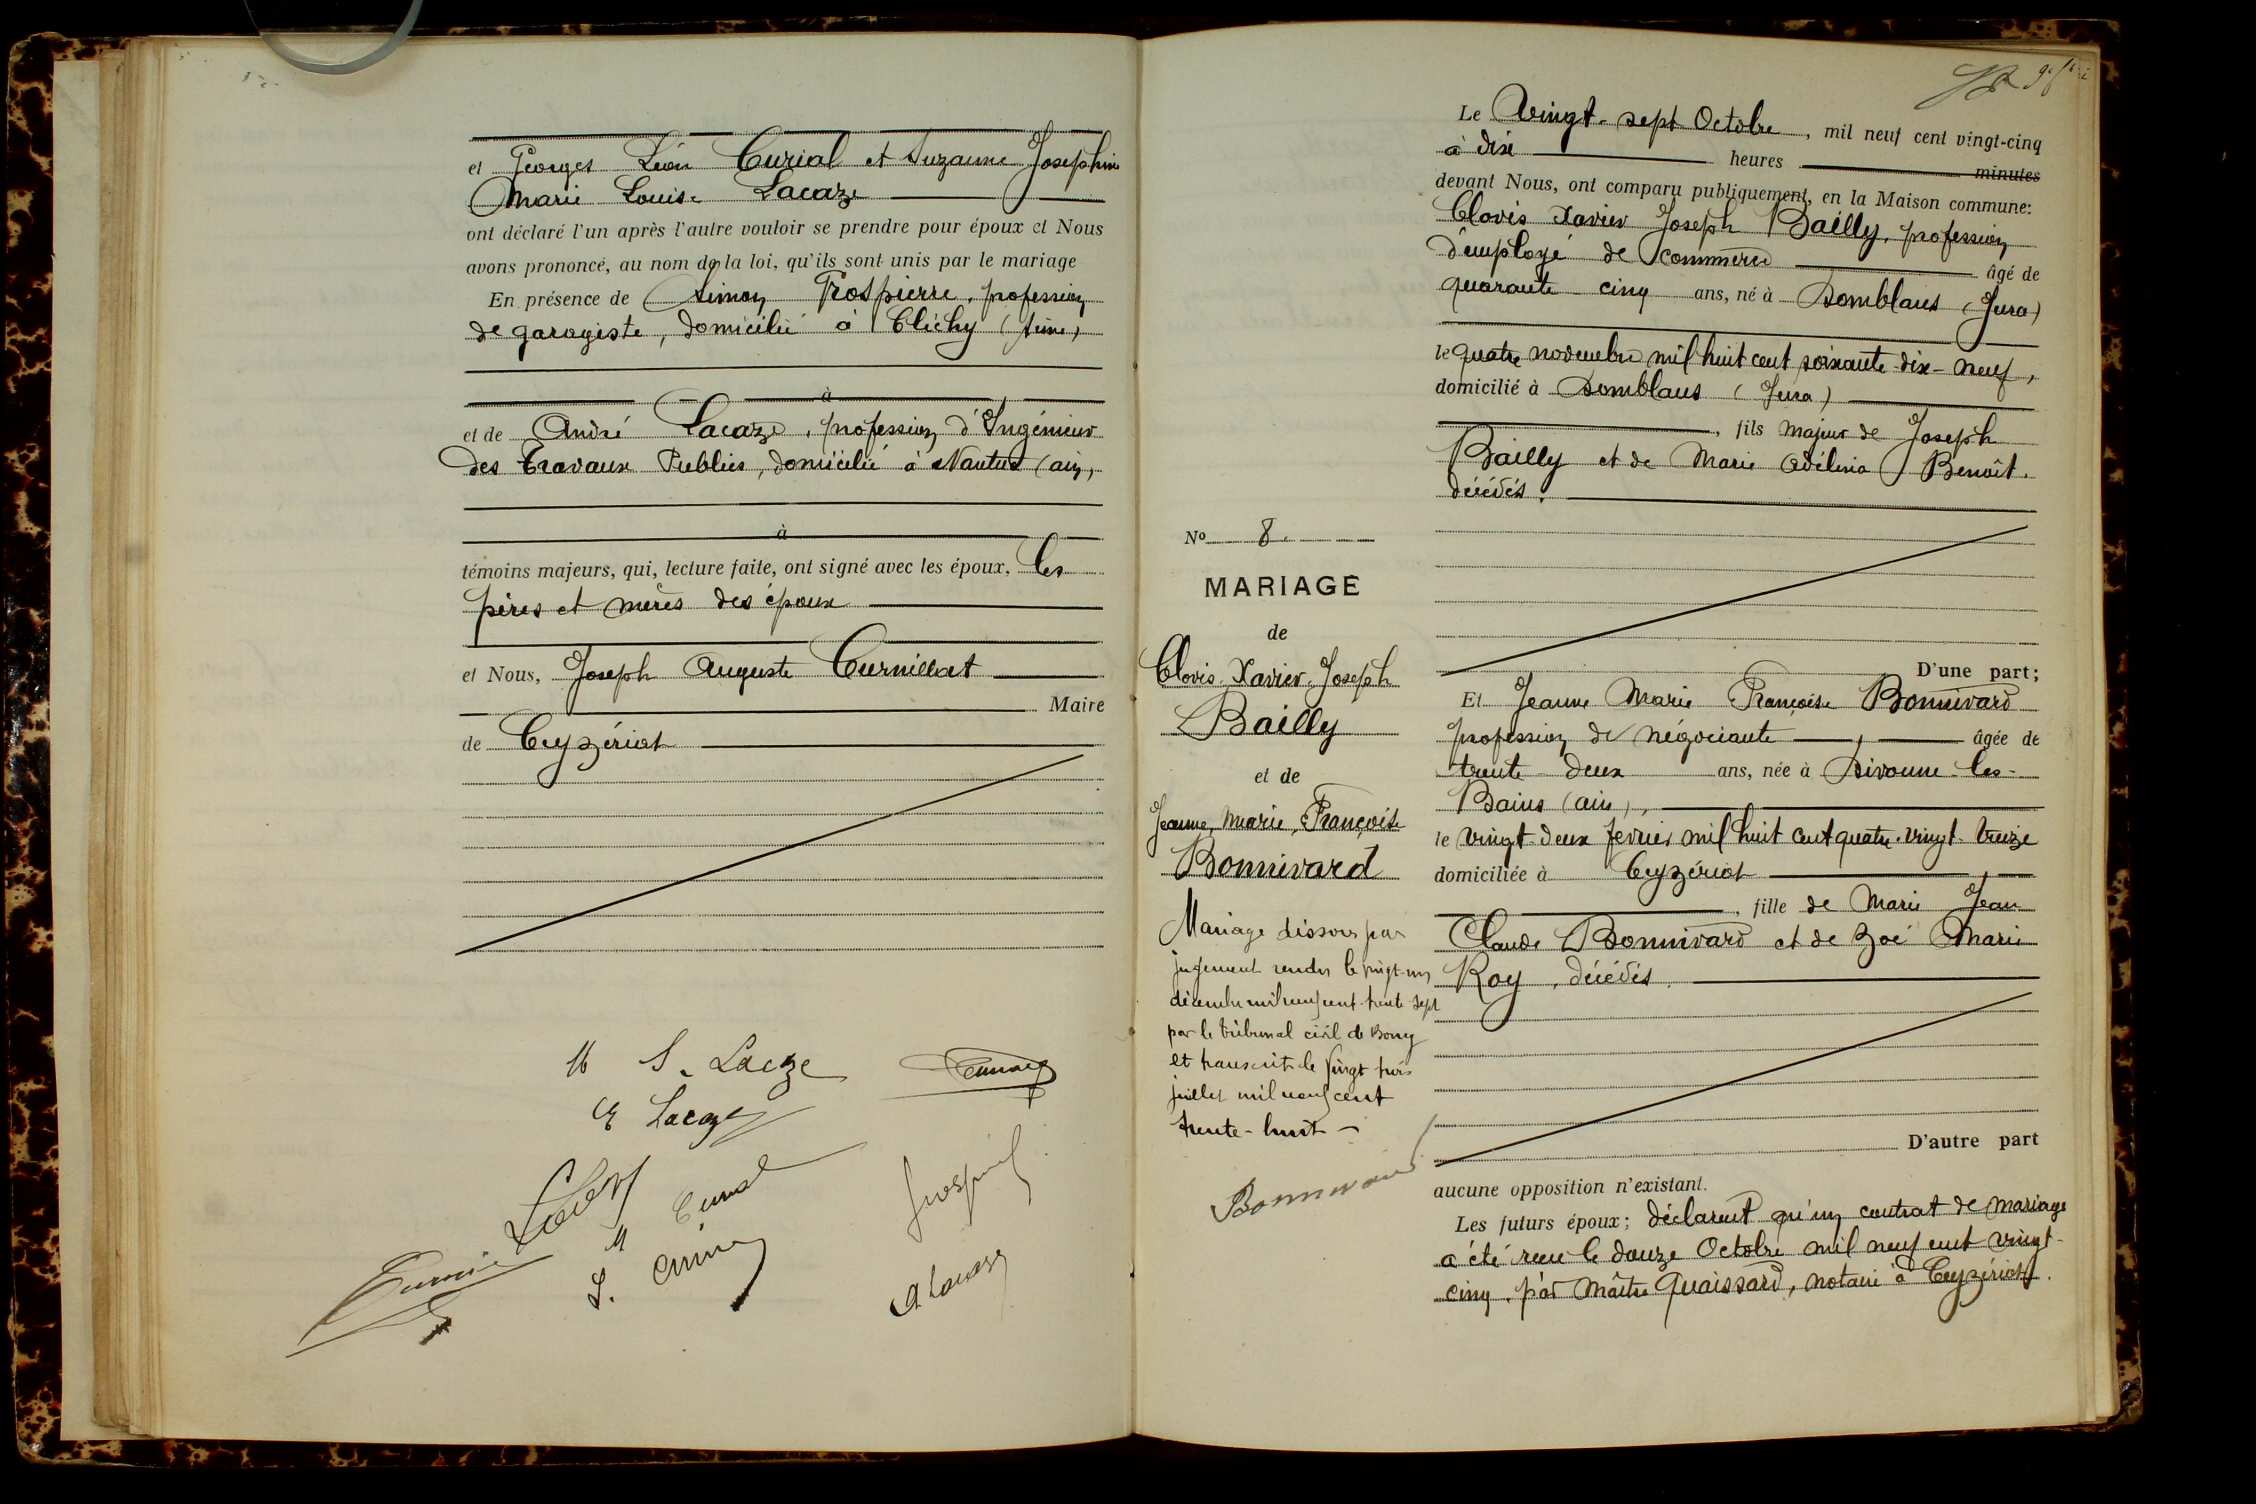 et Georges Léon Curial et Suzanne Josephine
Marie Louise Lacaze
ont déclaré l'un après l'autre vouloir se prendre pour époux et Nous
avons prononcé, au nom de la loi, qu'ils sont unis par le mariage
En présence de Simon Prospierre, profession
de garagiste, domicilié à Clichy (Seine)
à
et de André Lacaze, profession d'Ingénieur
des Travaux Publics, domicilié à Nantua (ain)
à
témoins majeurs, qui, lecture faite, ont signé avec les époux, les
pères et mères des époux
et Nous, Joseph Auguste Curnillat
Maire
de Ceyzériat
M S. Lacaze
E Lacaze
M Curial
A Lacaze
Le Vingt-sept Octobre, mil neuf cent vingt-cinq
à dix heures minutes
devant Nous, ont comparu publiquement, en la Maison commune:
Clovis Xavier Joseph Bailly, profession
d'employé de commerce âgé de
quarante cinq ans, né à Domblans (Jura)
le quatre novembre mil huit cent soixante-dix-neuf,
domicilié à Domblans (Jura)
, fils majeur de Joseph
Bailly et de Marie Adélina Benoît.
décédés.
No 8.
MARIAGE
de
Clovis-Xavier-Joseph
Bailly
et de
Jeanne, Marie, Françoise
Bonnivard
Mariage dissous par
jugement rendu le vingt-un
décembre mil neuf cent trente-sept
par le tribunal civil de Bourg
et transcrit le vingt trois
juillet mil neuf cent
trente-huit -
Bonnivard
D'une part;
Et Jeanne Marie Françoise Bonnivard
profession de négociante, âgée de
trente deux ans, née à Divonne-les-
Bains (ain),
le vingt-deux fevrier mil huit cent quatre-vingt-treize
domiciliée à Ceyzériat
, fille de Marie Jean
Claude Bonnivard et de Zoé Marie
Roy, décédés.
D'autre part
aucune opposition n'existant.
Les futurs époux; déclarent qu'un contrat de mariage
a été reçu le douze Octobre mil neuf cent vingt-
cinq, par Maître Quaissard, notaire à Ceyzériat.